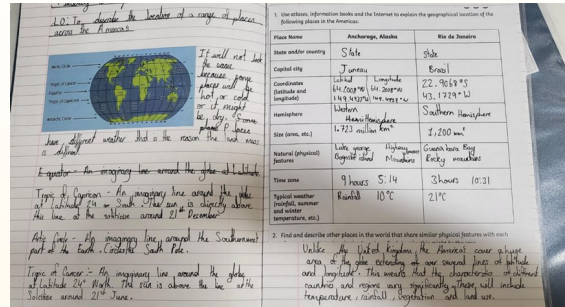 LO: To describe the location of a range of places
across the Americas.
It will not look
the same
because some
places will be
hot or cold
or it might
be dry. Some
places
have different weather that is the reason the land mass
is different
Arctic Circle
Tropic of Cancer
Equator
Tropic of Capricorn
Antarctic Circle
Equator - An imaginary line around the globe at latitude.
Tropic of Capricorn - An imaginary line around the globe
at Latitude 24° South. The sun is directly above
this line at the solstice around 21st December
Circle - An imaginary line around the Southernmost
part of the Earth. South Pole.
Tropic of Cancer:- An imaginary line around the globe
at Latitude 24° North. The sun is above the line at the
Solstice around 21st June.
1. Use atlases, information books and the Internet to explain the geographical location of the
following places in the Americas:
Place Name Anchorage, Alaska Rio de Janeiro
State and/or country State State
Capital city Juneau Brazil
Coordinates
(latitude and
longitude)
Latitud Longitude
22.9068°S
43.1729°W
Hemisphere Western Hemisphere Southern Hemisphere
Size (area, etc.) 1.723 million km² 1,200 km²
Natural (physical)
features
Lake george
Mountains
Guanabara Bay
Rocky mountains
Time zone 9 hours 5:14 3 hours 10:31
Typical weather
(rainfall, summer
and winter
temperature, etc.)
Rainfall 10°C 21°C
2. Find and describe other places in the world that share similar physical features with each
Unlike the United Kingdom, the Americas cover a huge
area of the globe extending over several lines of latitude
and longitude. This means that the characteristics of different
countries and regions vary significantly. These will include
temperature, rainfall, vegetation and land use.